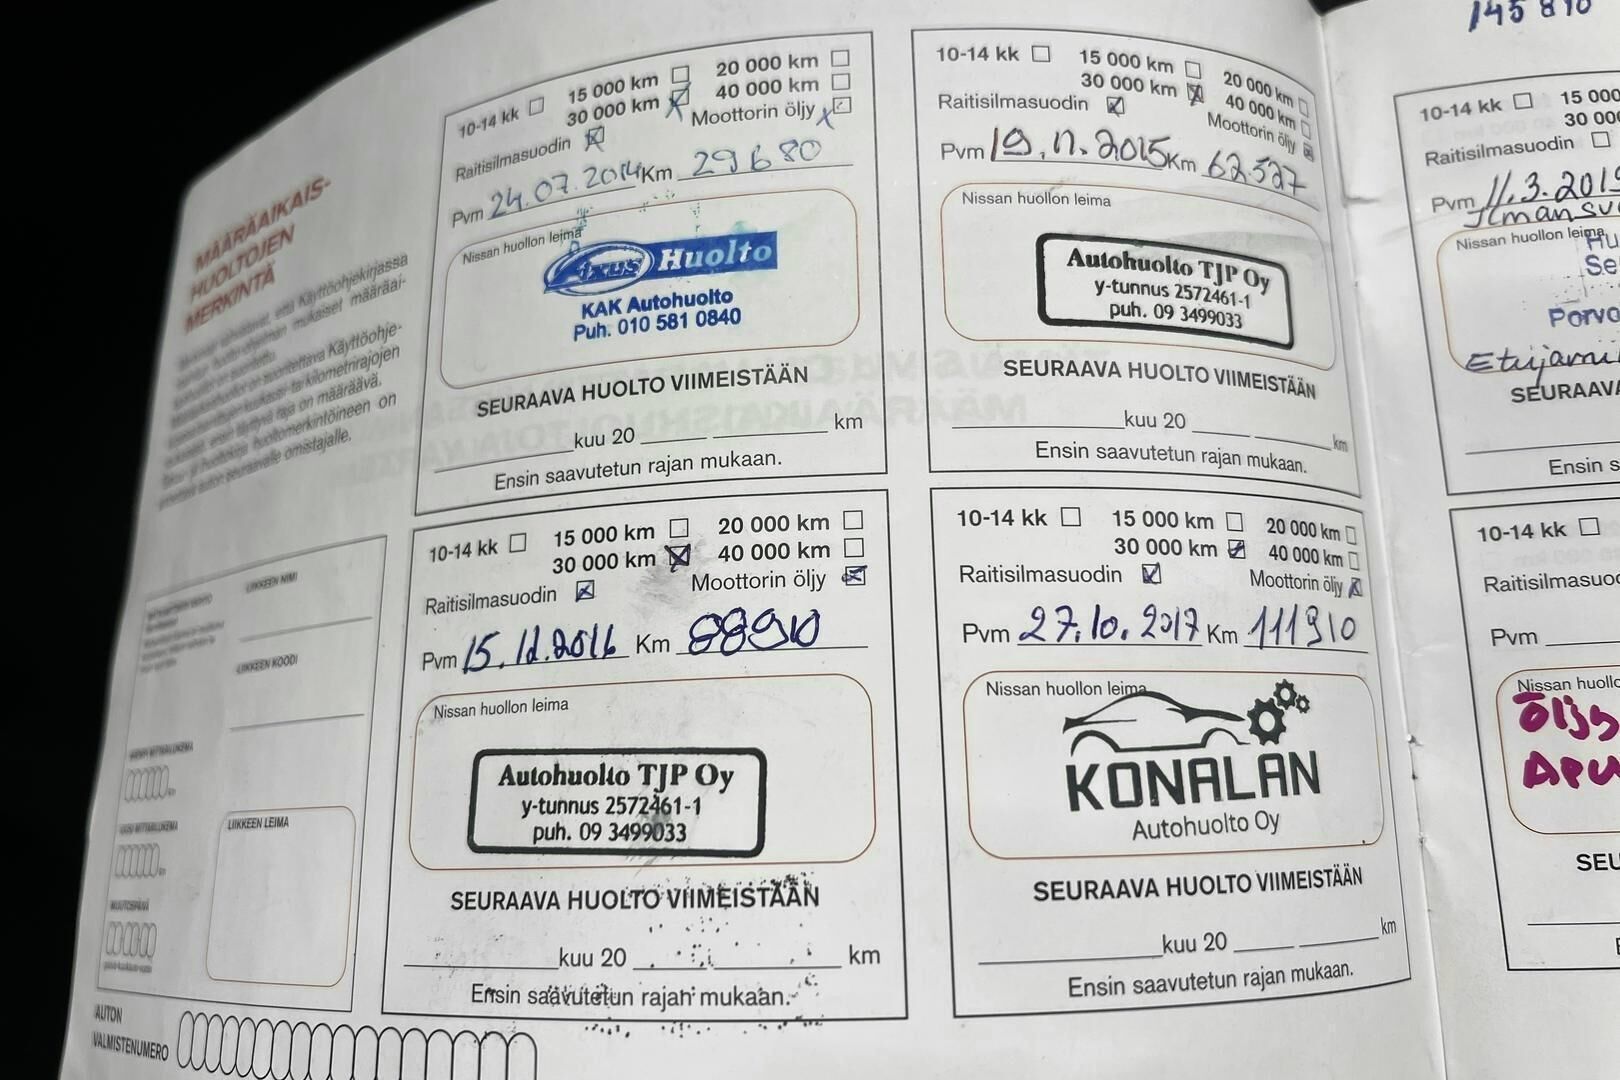 MÄÄRÄAIKAIS-
HUOLTOJEN
MERKINTÄ
10-14 kk 15 000 km 20 000 km
30 000 km 40 000 km
Raitisilmasuodin Moottorin öljy
Pvm 24.07.2014 Km 29680
Nissan huollon leima
Axus Huolto
KAK Autohuolto
Puh. 010 581 0840
SEURAAVA HUOLTO VIIMEISTÄÄN
kuu 20 km
Ensin saavutetun rajan mukaan.
10-14 kk 15 000 km 20 000 km
30 000 km 40 000 km
Raitisilmasuodin Moottorin öljy
Pvm 19.11.2015 Km 62527
Nissan huollon leima
Autohuolto TJP Oy
y-tunnus 2572461-1
puh. 09 3499033
SEURAAVA HUOLTO VIIMEISTÄÄN
kuu 20 km
Ensin saavutetun rajan mukaan.
LIIKKEEN NIMI
LIIKKEEN KOODI
LIIKKEEN LEIMA
AUTON
VALMISTENUMERO
10-14 kk 15 000 km 20 000 km
30 000 km 40 000 km
Raitisilmasuodin Moottorin öljy
Pvm 15.12.2016 Km 88910
Nissan huollon leima
Autohuolto TJP Oy
y-tunnus 2572461-1
puh. 09 3499033
SEURAAVA HUOLTO VIIMEISTÄÄN
kuu 20 km
Ensin saavutetun rajan mukaan.
10-14 kk 15 000 km 20 000 km
30 000 km 40 000 km
Raitisilmasuodin Moottorin öljy
Pvm 27.10.2017 Km 111910
Nissan huollon leima
KONALAN
Autohuolto Oy
SEURAAVA HUOLTO VIIMEISTÄÄN
kuu 20 km
Ensin saavutetun rajan mukaan.
145 810
10-14 kk 15 000
30 00
Raitisilmasuodin
Pvm 11.3.2019
Ilmansu
Nissan huollon leima
Hu
Se
Porvo
Etujarru
SEURAAVA
Ensin s
10-14 kk 15 0
30 0
Raitisilmasuod
Pvm
Nissan huollo
Öljy
APU
SEU